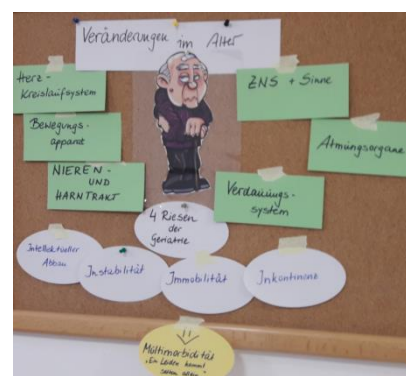 Veränderungen im Alter
Herz-
Kreislaufsystem
ZNS + Sinne
Bewegungs-
apparat
Atmungsorgane
NIEREN-
UND
HARNTRAKT
Verdauungs-
system
4 Riesen
der
Geriatrie
Intellektueller
Abbau
Instabilität
Immobilität
Inkontinenz
Multimorbidität
"Ein Leiden kommt
selten allein"